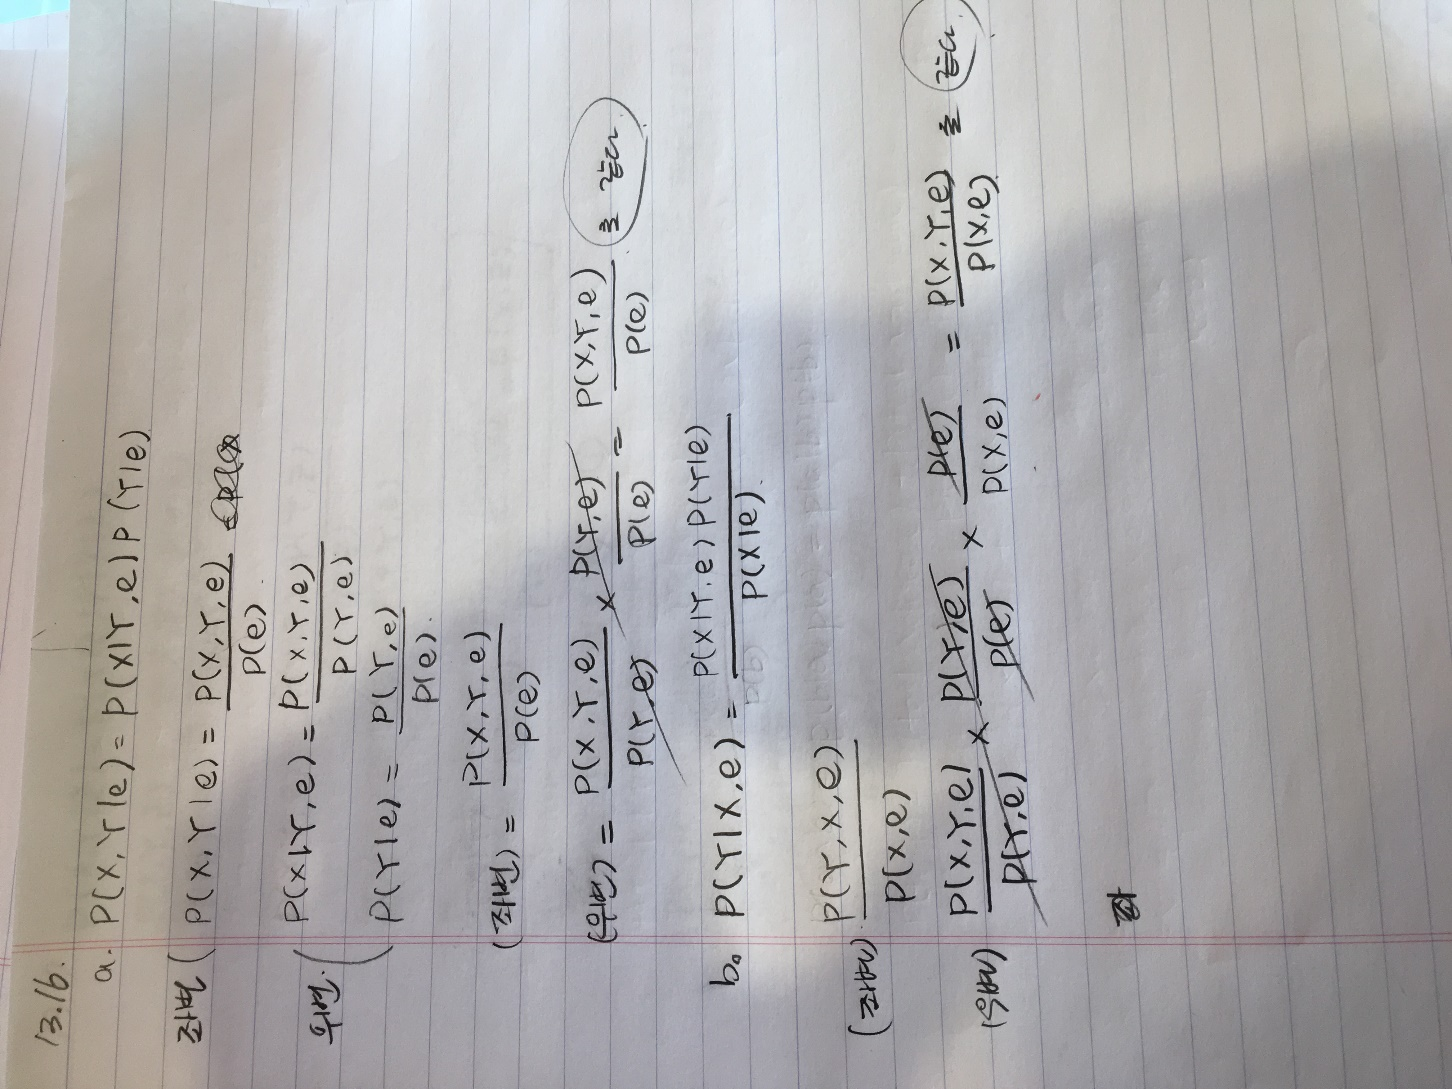 13.16.
a. P(X,Y|e) = P(X|Y,e) P(Y|e)
좌변 ( P(X,Y|e) = P(X,Y,e) / P(e).
우변. ( P(X|Y,e) = P(X,Y,e) / P(Y,e)
P(Y|e) = P(Y,e) / P(e).
(좌변) = P(X,Y,e) / P(e)
(우변) = P(X,Y,e) / P(Y,e) × P(Y,e) / P(e) = P(X,Y,e) / P(e) 로 같다.
b. P(Y|X,e) = P(X|Y,e) P(Y|e) / P(X|e).
(좌변) P(Y,X,e) / P(X,e)
(우변) P(X,Y,e) / P(Y,e) × P(Y,e) / P(e) × P(e) / P(X,e) = P(X,Y,e) / P(X,e) 로 같다.